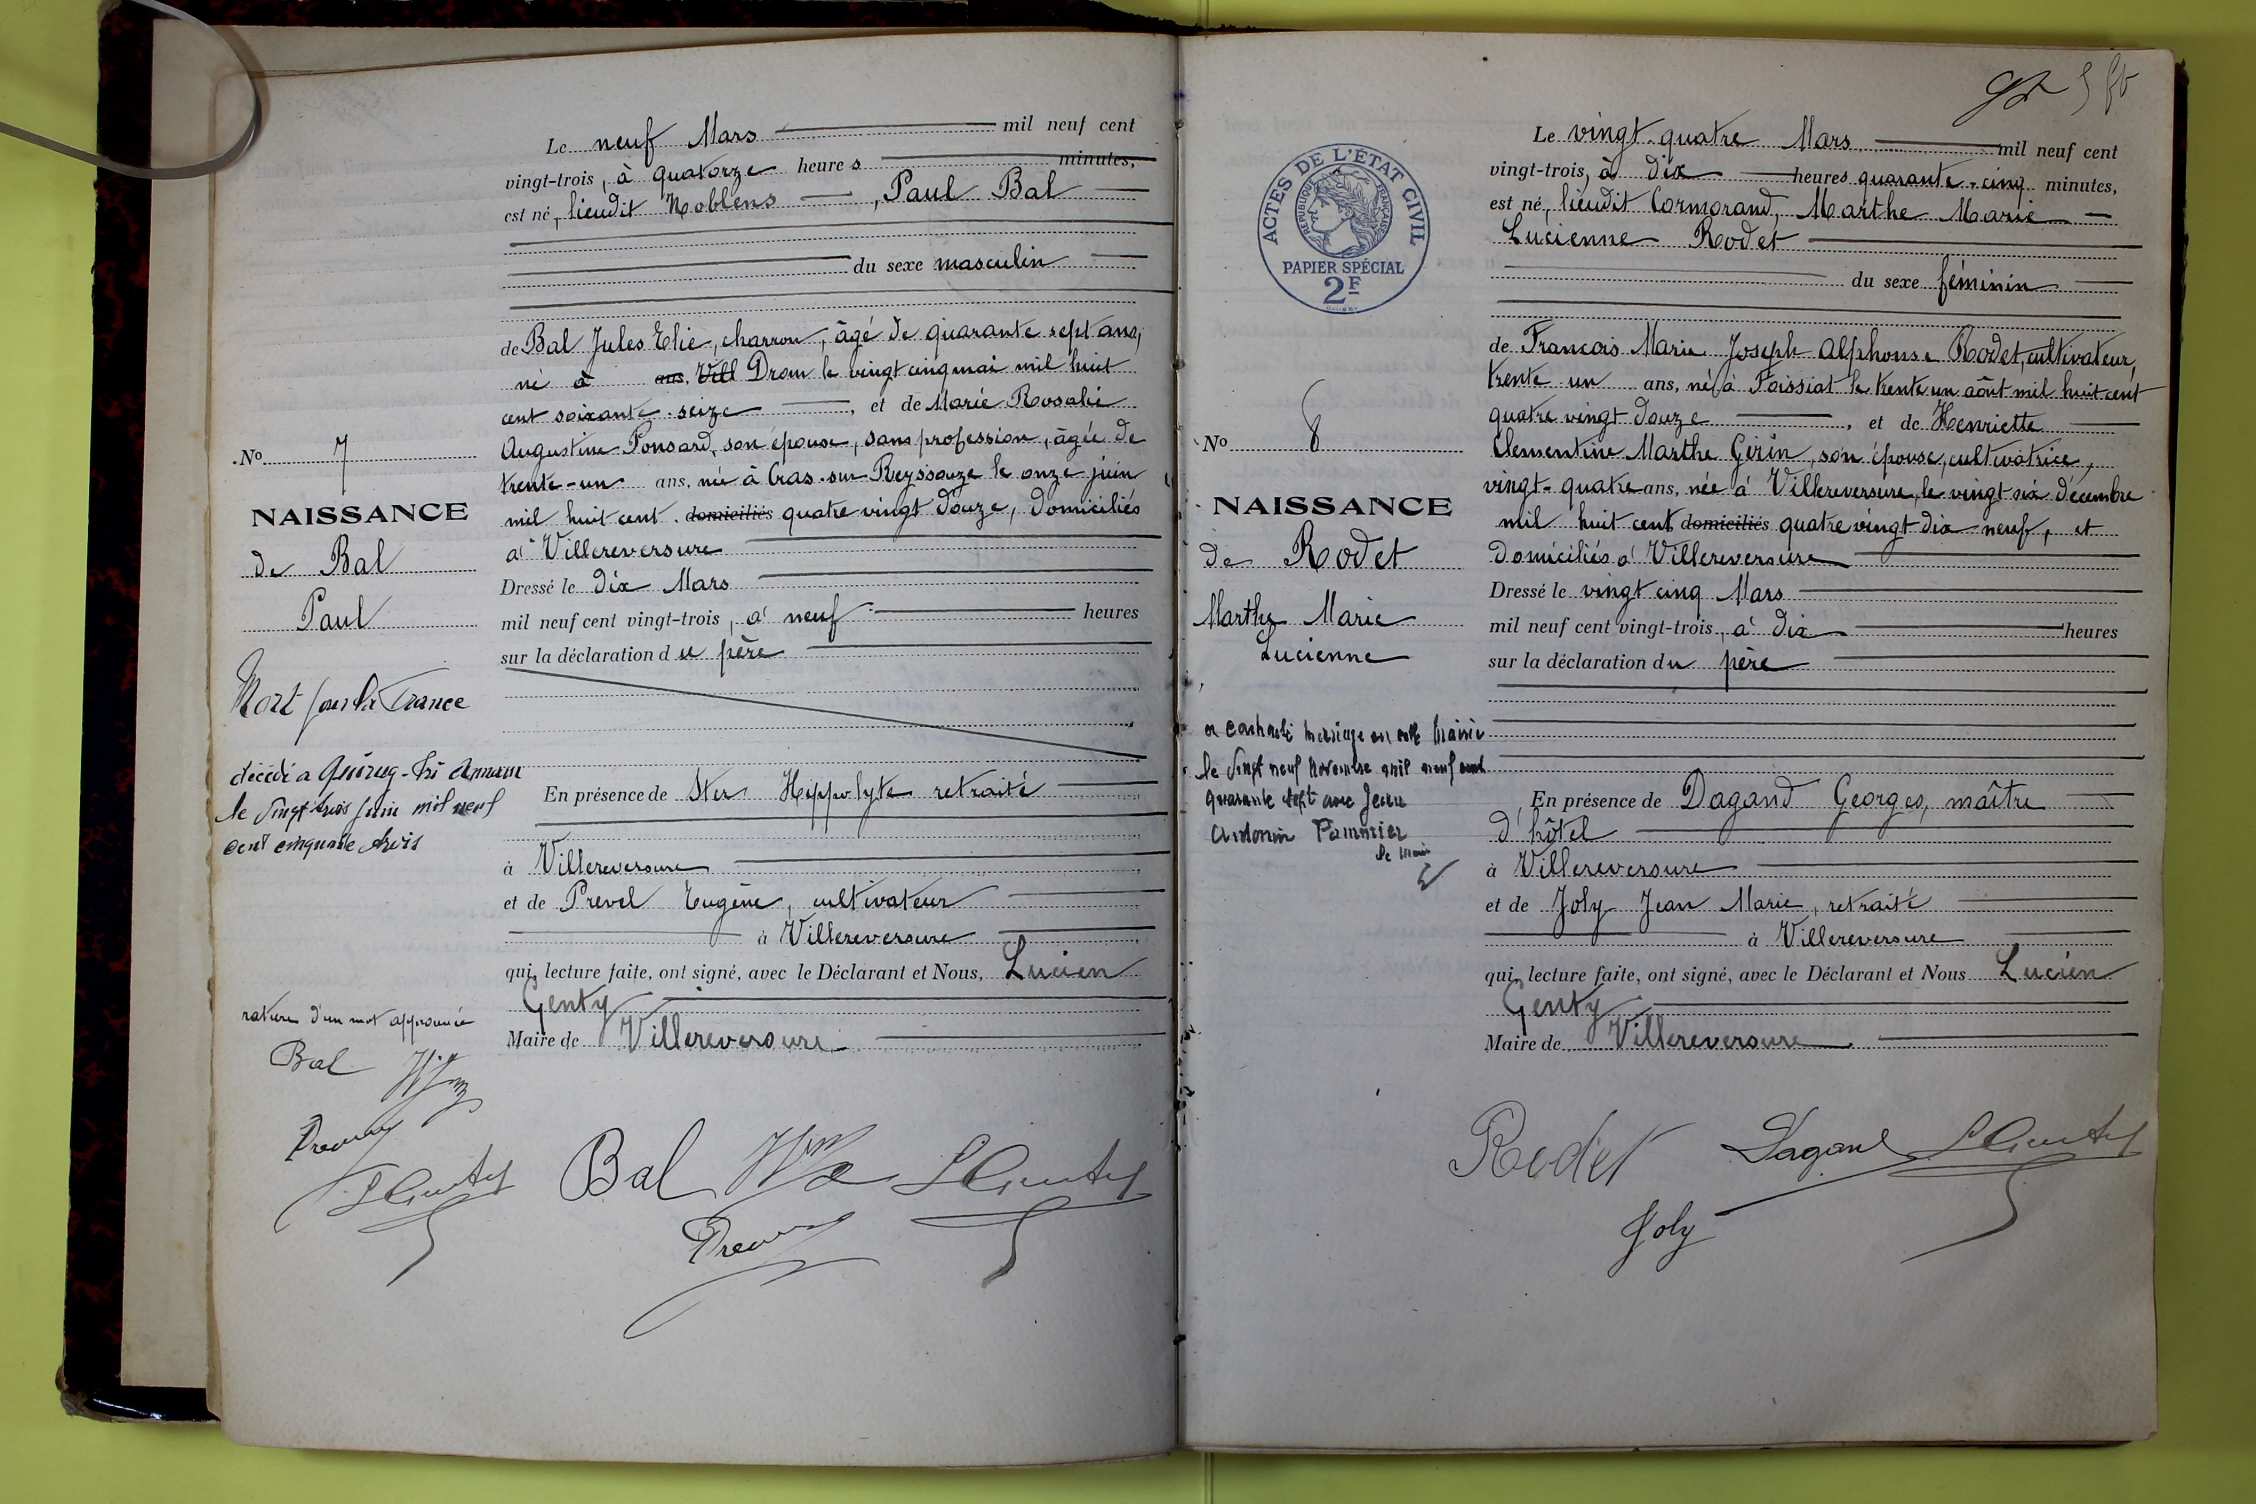 Le neuf Mars mil neuf cent
vingt-trois, à quatorze heures minutes,
est né, lieudit Noblens, Paul Bal
du sexe masculin
de Bal Jules Elie, charron, âgé de quarante sept ans,
né à ans, Vill Drom le vingt cinq mai mil huit
cent soixante-seize, et de Marie Rosalie
Augustine Ponsard, son épouse, sans profession, âgée de
trente-un ans, née à Cras-sur-Reyssouze le onze juin
mil huit cent domiciliés quatre vingt douze, domiciliés
à Villereversure
Dressé le dix Mars
mil neuf cent vingt-trois, à neuf heures
sur la déclaration du père
En présence de Hippolyte retraité
à Villereversure
et de Prevel Eugène, cultivateur
à Villereversure
qui, lecture faite, ont signé, avec le Déclarant et Nous, Lucien
Genty
Maire de Villereversure
Bal
No 7
NAISSANCE
de Bal
Paul
Mort pour la France
décédé à
le vingt trois juin mil neuf
cent cinquante trois
rature d'un mot approuvée
Bal
Le vingt-quatre Mars mil neuf cent
vingt-trois, à dix heures quarante-cinq minutes,
est né, lieudit Cormorand, Marthe Marie
Lucienne Rodet
du sexe féminin
de François Marie Joseph Alphonse Rodet, cultivateur,
trente un ans, né à Foissiat le trente un août mil huit cent
quatre vingt douze, et de Henriette
Clementine Marthe Gérin, son épouse, cultivatrice,
vingt-quatre ans, née à Villereversure, le vingt six décembre
mil huit cent domiciliés quatre vingt dix neuf, et
domiciliés à Villereversure
Dressé le vingt cinq Mars
mil neuf cent vingt-trois, à dix heures
sur la déclaration du père
En présence de Dagand Georges, maître
d'hôtel
à Villereversure
et de Joly Jean Marie, retraité
à Villereversure
qui, lecture faite, ont signé, avec le Déclarant et Nous Lucien
Genty
Maire de Villereversure
Rodet Dagand
Joly
ACTES DE L'ÉTAT CIVIL
RÉPUBLIQUE FRANÇAISE
PAPIER SPÉCIAL
2F
No 8
NAISSANCE
de Rodet
Marthe Marie
Lucienne
a contracté mariage en cette Mairie
le vingt neuf novembre mil neuf cent
quarante sept avec Jean
Antonin
le Maire